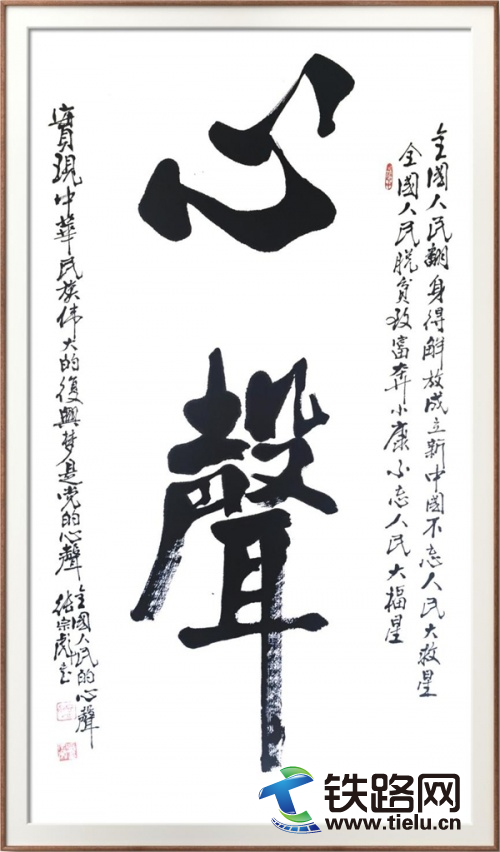 心聲
全國人民翻身得解放成立新中國不忘人民大救星
全國人民脱貧致富奔小康不忘人民大福星
實現中華民族伟大的復興梦是党的心聲
全國人民的心聲
铁路网
www.tielu.cn